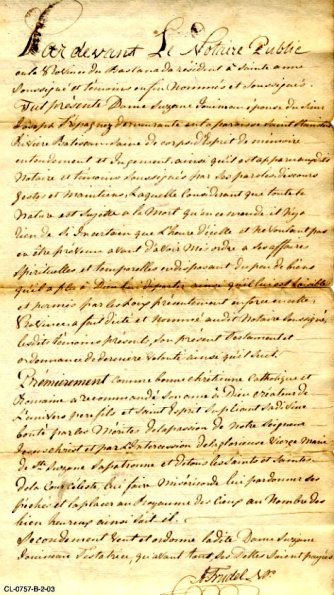 Pardevant Le Notaire Public
en la Province du Bas Canada résident à Sainte anne
Soussigné et témoins enfin Nommés et Soussignés
fut présente Dame Suzanne épouse du Sieur
Joseph demeurante en la paroisse Saint Stanislas
Rivière Batiscan Saine de corps d'Esprit de mémoire
entendement et Jugement ainsi qu'il est apparu audit
Notaire et témoins Soussignés par Ses paroles discours
gestes et maintiens, Laquelle Considérant que toute la
Nature est Sujette a la Mort qu'en ce monde il n'y a
rien de Si Incertain que l'heure d'icelle et ne Voulant pas
en être prévenue avant d'avoir Mis ordre a Ses affaires
Spirituelles et temporelles en disposant du peu de biens
qu'il a plu à Dieu lui departir ainsi qu'il lui est Loisible
et permis par les Loix présentement en force en cette
Province, a fait dicté et Nommé audit Notaire Soussigné
lesdits témoins présent, Son présent testament et
ordonnance de derniere Volonté ainsi qu'il Suit.
Prémièrement comme bonne chrétienne Catholique et
Romaine a recommandé Son ame à Dieu créateur de
l'univers pere fils et Saint Esprit Supliant Sa divine
bonté par les Mérites de la passion de Notre Seigneur
Jesus christ et par l'Intercession de la glorieuse Vierge Marie
de Ste Suzanne Sa patronne et de tous les Saints et Saintes
de la Cour Céleste lui faire Miséricorde lui pardonner Ses
péchés et la placer au Royaume des Cieux au Nombre des
bien heureux ainsi Soit il.
Secondement Veut et ordonne ladite Dame Suzanne
testatrice, qu'avant tout Ses Dettes Soient payées
A Trudel N.P.
CL-0757-B-2-03